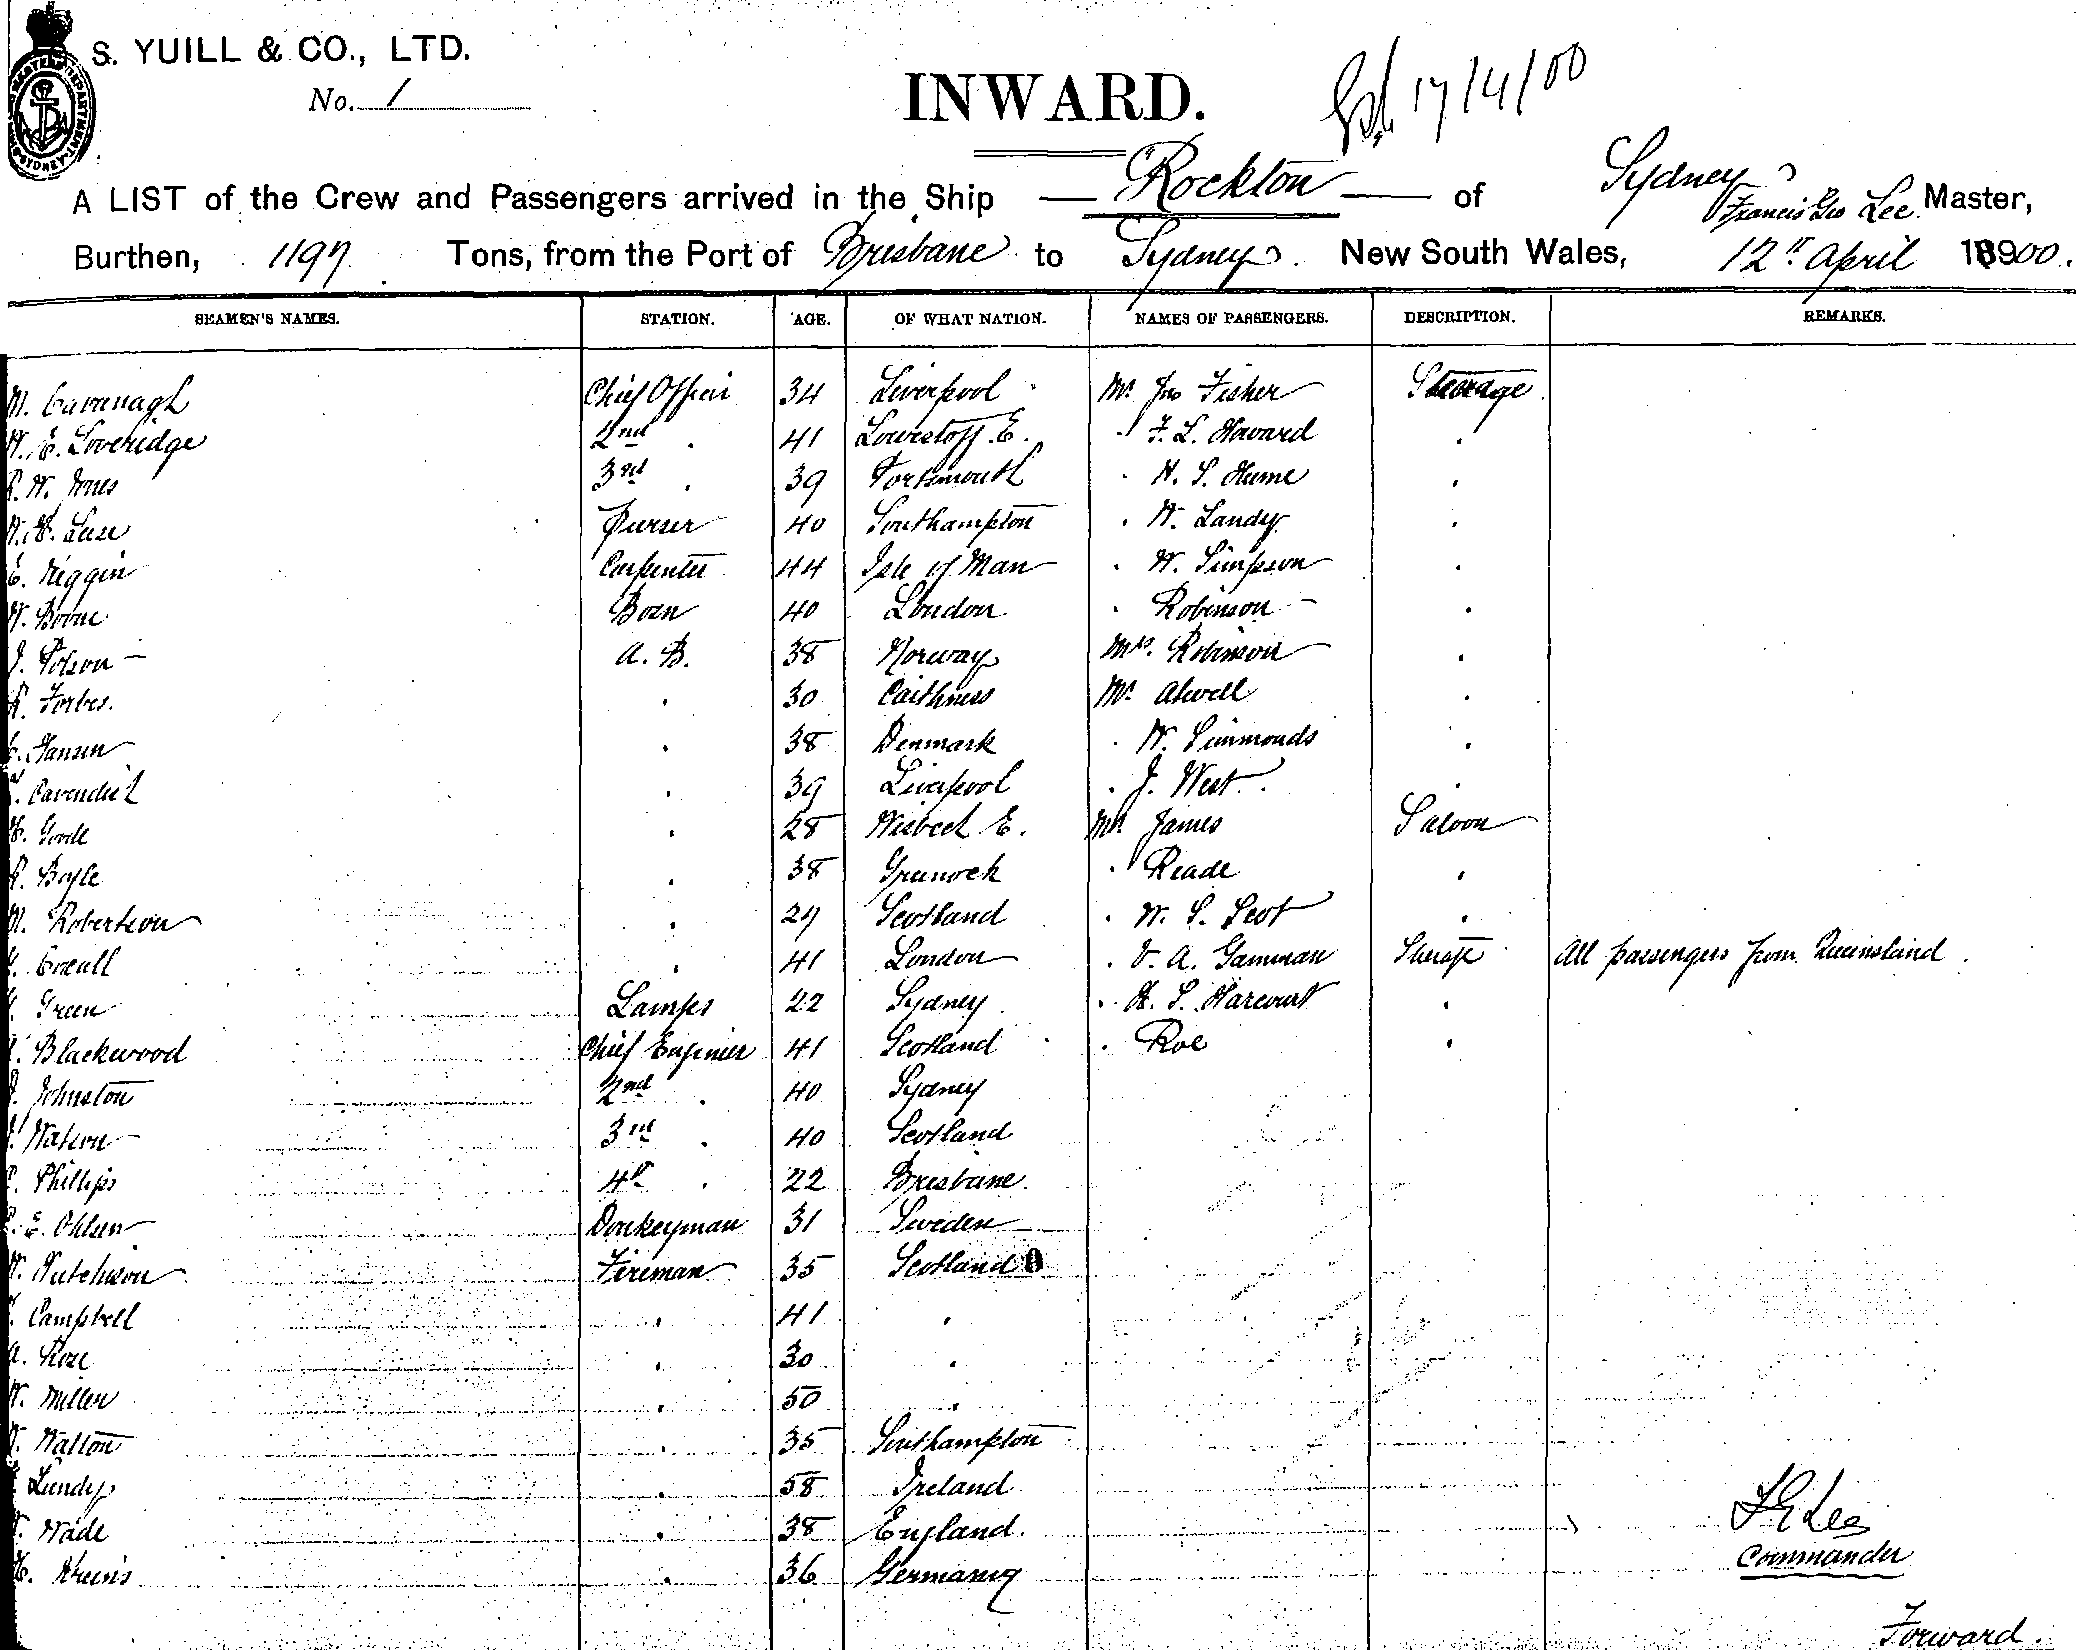 S. YUILL & CO., LTD.
No. 1
INWARD.
17/4/00
A LIST of the Crew and Passengers arrived in the Ship — Rockton — of Sydney
Francis Geo Lee Master,
Burthen, 1197 Tons, from the Port of Brisbane to Sydney. New South Wales, 12th April 1900.
SEAMEN'S NAMES. STATION. AGE. OF WHAT NATION. NAMES OF PASSENGERS. DESCRIPTION. REMARKS.
M. Cavanagh Chief Officer 34 Liverpool Mr Jno Fisher Steerage
W. E. Loveridge 2nd . 41 Lowestoff E. . F. L. Howard .
R. W. Jones 3rd . 39 Portsmouth . H. S. Hume .
Purser 40 Southampton . W. Landy .
Carpenter 44 Isle of Man . W. Simpson .
W. Boone Bosn 40 London . Robinson .
J. Polson A. B. 38 Norway Mrs. Robinson .
R. Forbes. . 30 Caithness Mr. Atwell .
Hansen . 38 Denmark . W. Simmonds .
Cavendish . 39 Liverpool . J. West. .
Goode . 28 Wisbech E. Mr James Saloon
R. Boyle . 38 Greenock . Reade .
M. Robertson . 29 Scotland . W. S. Scot .
Coxall . 41 London . V. A. Gamman Steerage All passengers from Queensland.
Green Lamps 22 Sydney . H. S. Harcourt .
Blackwood Chief Engineer 41 Scotland . Roe .
Johnston 2nd . 40 Sydney
Watson 3rd . 40 Scotland
Phillips 4th . 22 Brisbane.
E. Ohlsen Donkeyman 31 Sweden
W. Hutchison Fireman 35 Scotland
Campbell . 41 .
A. Rose . 30 .
W. Miller . 50 .
Walton . 35 Southampton
Lundy . 58 Ireland
Wade . 38 England.
H. . 36 Germany
F G Lee
Commander
Forward.